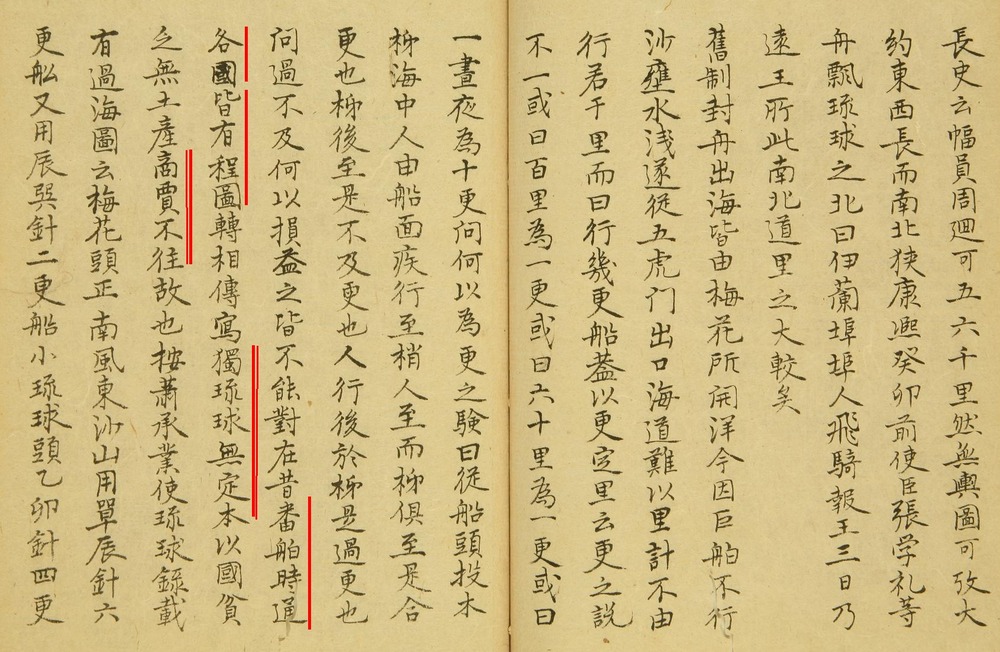 長史云幅員周迴可五六千里然無輿圖可攷大
約東西長而南北狹康熙癸卯前使臣張学礼等
舟飄琉球之北曰伊蘭埠埠人飛騎報王三日乃
逺王所此南北道里之大較矣
舊制封舟出海皆由梅花所開洋今因巨舶不行
沙壅水淺遂從五虎门出口海道難以里計不由
行若干里而曰行幾更船葢以更定里云更之説
不一或曰百里為一更或曰六十里為一更或曰
一晝夜為十更问何以為更之驗曰従船頭投木
柹海中人由船面疾行至梢人至而柹俱至是合
更也柹後至是不及更也人行後於柹是過更也
问過不及何以損益之皆不能對在昔畨舶時通
各國皆有程圖轉相傳寫獨琉球無定本以國貧
乏無土產商賈不往故也按蕭承業使琉球錄載
有過海圖云梅花頭正南風東沙山用單辰針六
更船又用辰巽針二更船小琉球頭乙卯針四更